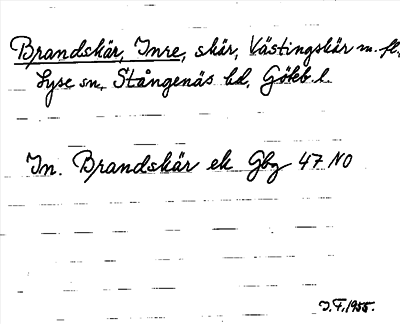 Brandskär, Inre, skär, Västingskär m. fl.
Lyse sn, Stångenäs hd, Göteb l.
In. Brandskär ek Gbg 47 NO
I. F. 1955.